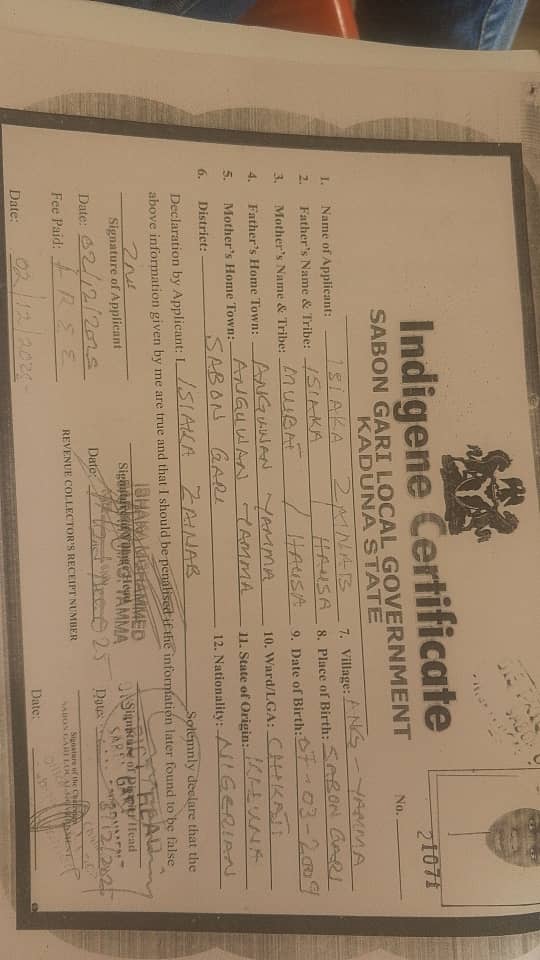 Indigene Certificate
SABON GARI LOCAL GOVERNMENT
KADUNA STATE
No. 21071
1. Name of Applicant: ISIAKA ZAINAB
2. Father's Name & Tribe: ISIAKA / HAUSA
3. Mother's Name & Tribe: / HAUSA
4. Father's Home Town: ANGUWAN YAMMA
5. Mother's Home Town: ANGUWAN YAMMA
6. District: SABON GARI
7. Village: ANG YAMMA
8. Place of Birth: SABON GARI
9. Date of Birth: 07-03-2009
10. Ward/LGA:
11. State of Origin: KADUNA
12. Nationality: NIGERIAN
Declaration by Applicant: I ISIAKA ZAINAB Solemnly declare that the
above information given by me are true and that I should be penalised if the information later found to be false
Signature of Applicant
Date: 02/12/2025
Signature of Village Head
ISHAKA MOHAMMED
YAMMA
Date:
Signature of District Head
Date:
Fee Paid: FREE
REVENUE COLLECTOR'S RECEIPT NUMBER
Signature of the Chairman
SABON GARI LOCAL GOVERNMENT
Date: 02/12/2025
Date: